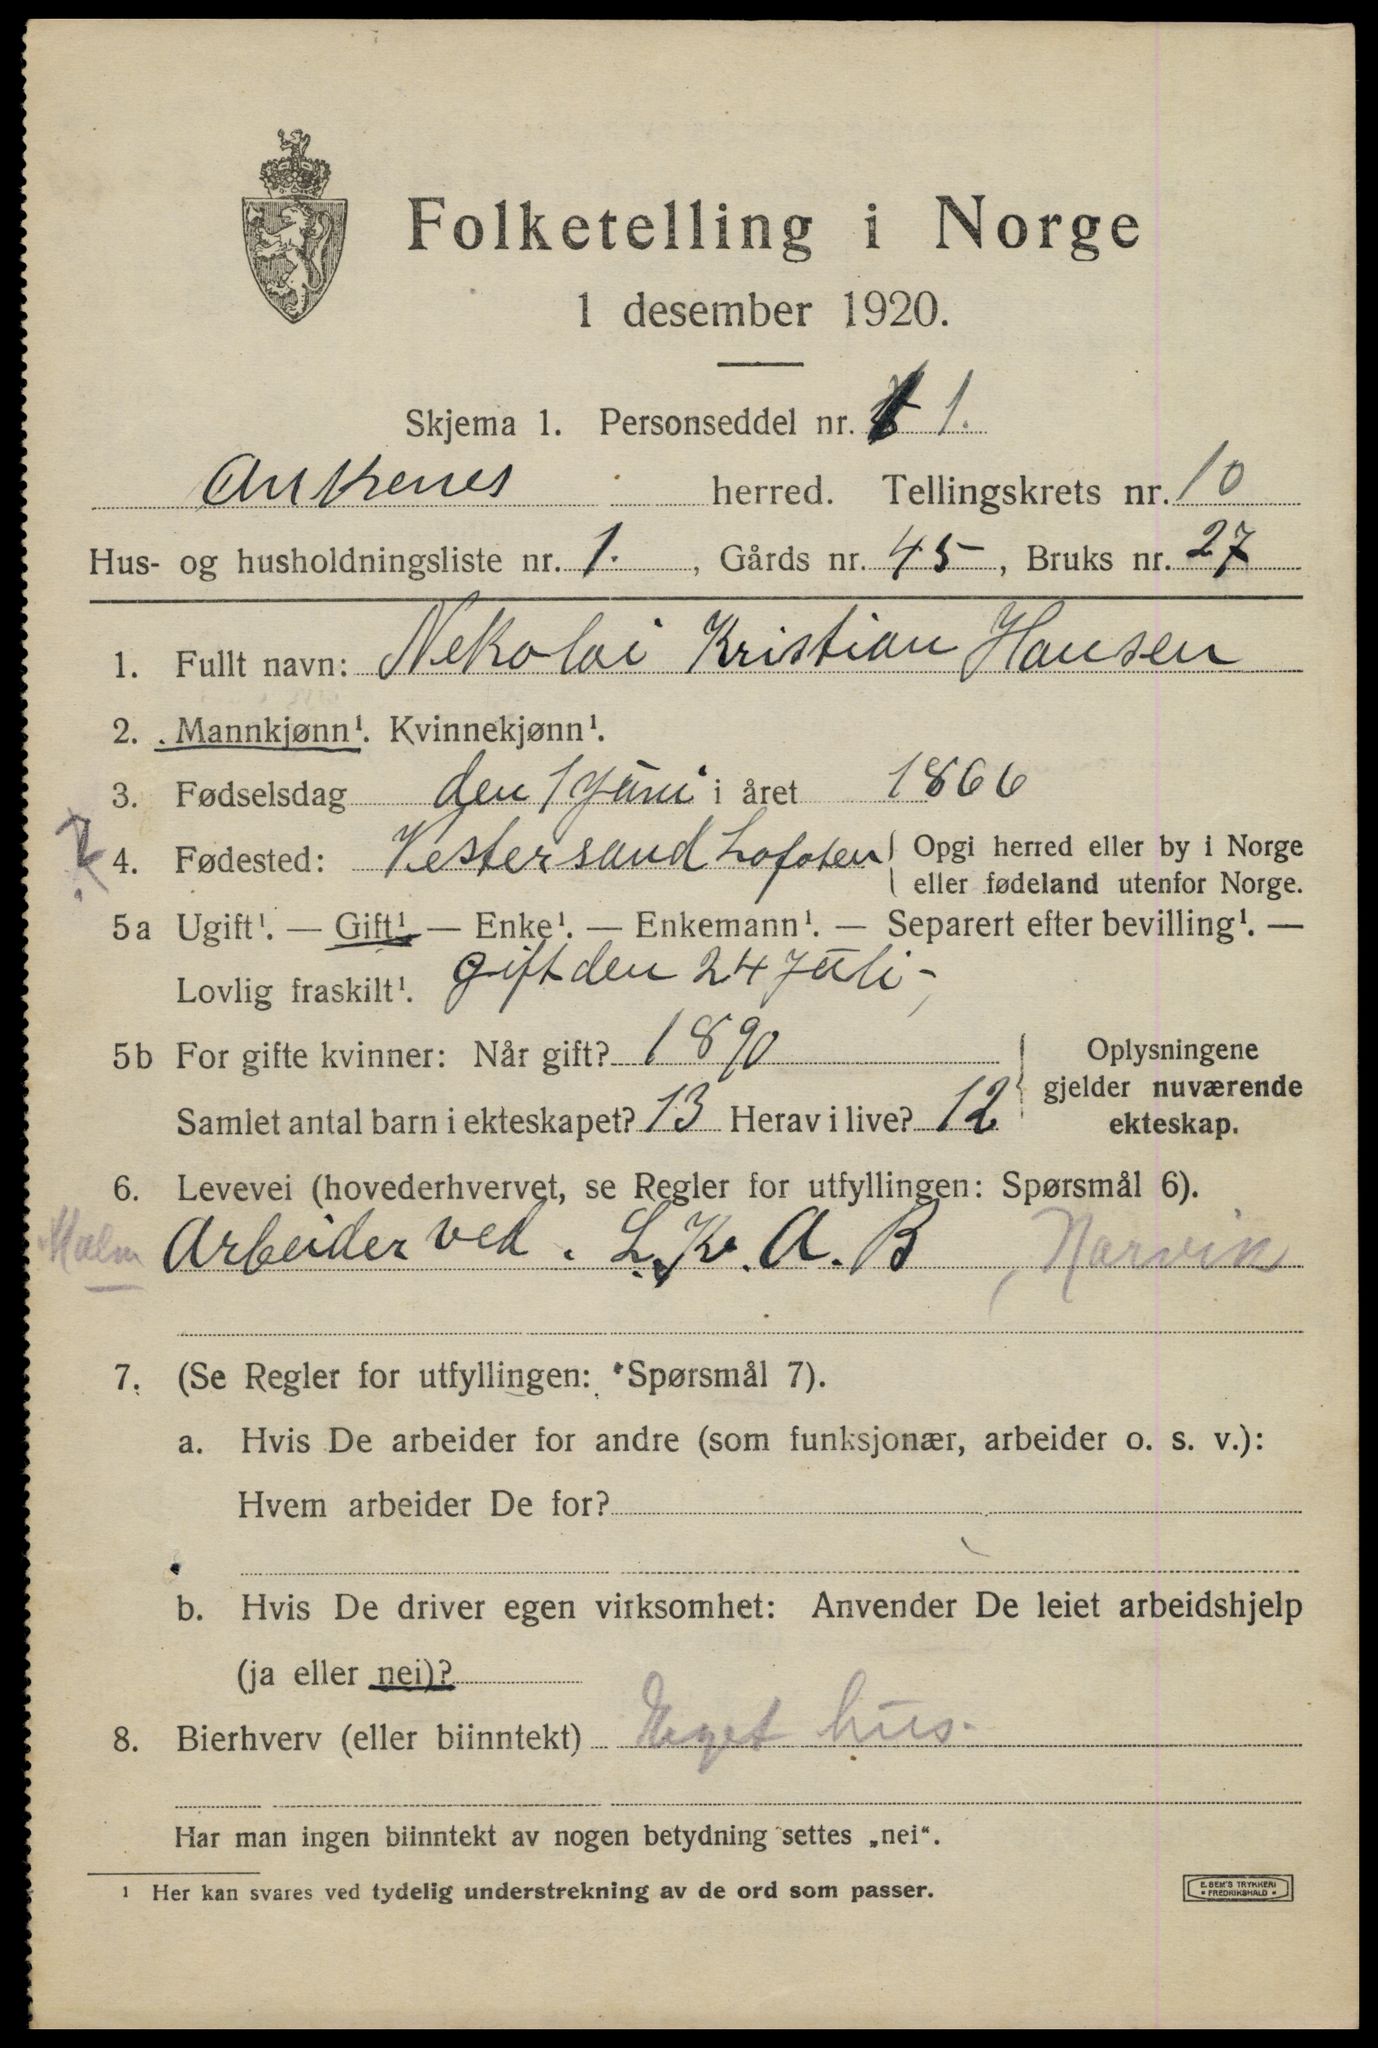 Folketelling i Norge
1 desember 1920.
Skjema 1. Personseddel nr. 1.
Ankenes herred. Tellingskrets nr. 10
Hus- og husholdningsliste nr. 1. , Gårds nr. 45 , Bruks nr. 27
1. Fullt navn: Nekolai Kristian Hansen
2. Mannkjønn¹. Kvinnekjønn¹.
3. Fødselsdag den 1 Juni i året 1866
4. Fødested: Vestersand Lofoten { Opgi herred eller by i Norge
eller fødeland utenfor Norge.
5a Ugift¹. — Gift¹ — Enke¹. — Enkemann¹. — Separert efter bevilling¹. —
Lovlig fraskilt¹. gift den 24 Juli -
5b For gifte kvinner: Når gift? 1890
Samlet antal barn i ekteskapet? 13 Herav i live? 12
Oplysningene
gjelder nuværende
ekteskap.
6. Levevei (hovederhvervet, se Regler for utfyllingen: Spørsmål 6).
Malm Arbeider ved. L. K. A. B , Narvik
7. (Se Regler for utfyllingen: Spørsmål 7).
a. Hvis De arbeider for andre (som funksjonær, arbeider o. s. v.):
Hvem arbeider De for?
b. Hvis De driver egen virksomhet: Anvender De leiet arbeidshjelp
(ja eller nei)?
8. Bierhverv (eller biinntekt) Eeget hus.
Har man ingen biinntekt av nogen betydning settes „nei“.
¹ Her kan svares ved tydelig understrekning av de ord som passer.
E. SEM'S TRYKKERI
• FREDRIKSHALD •